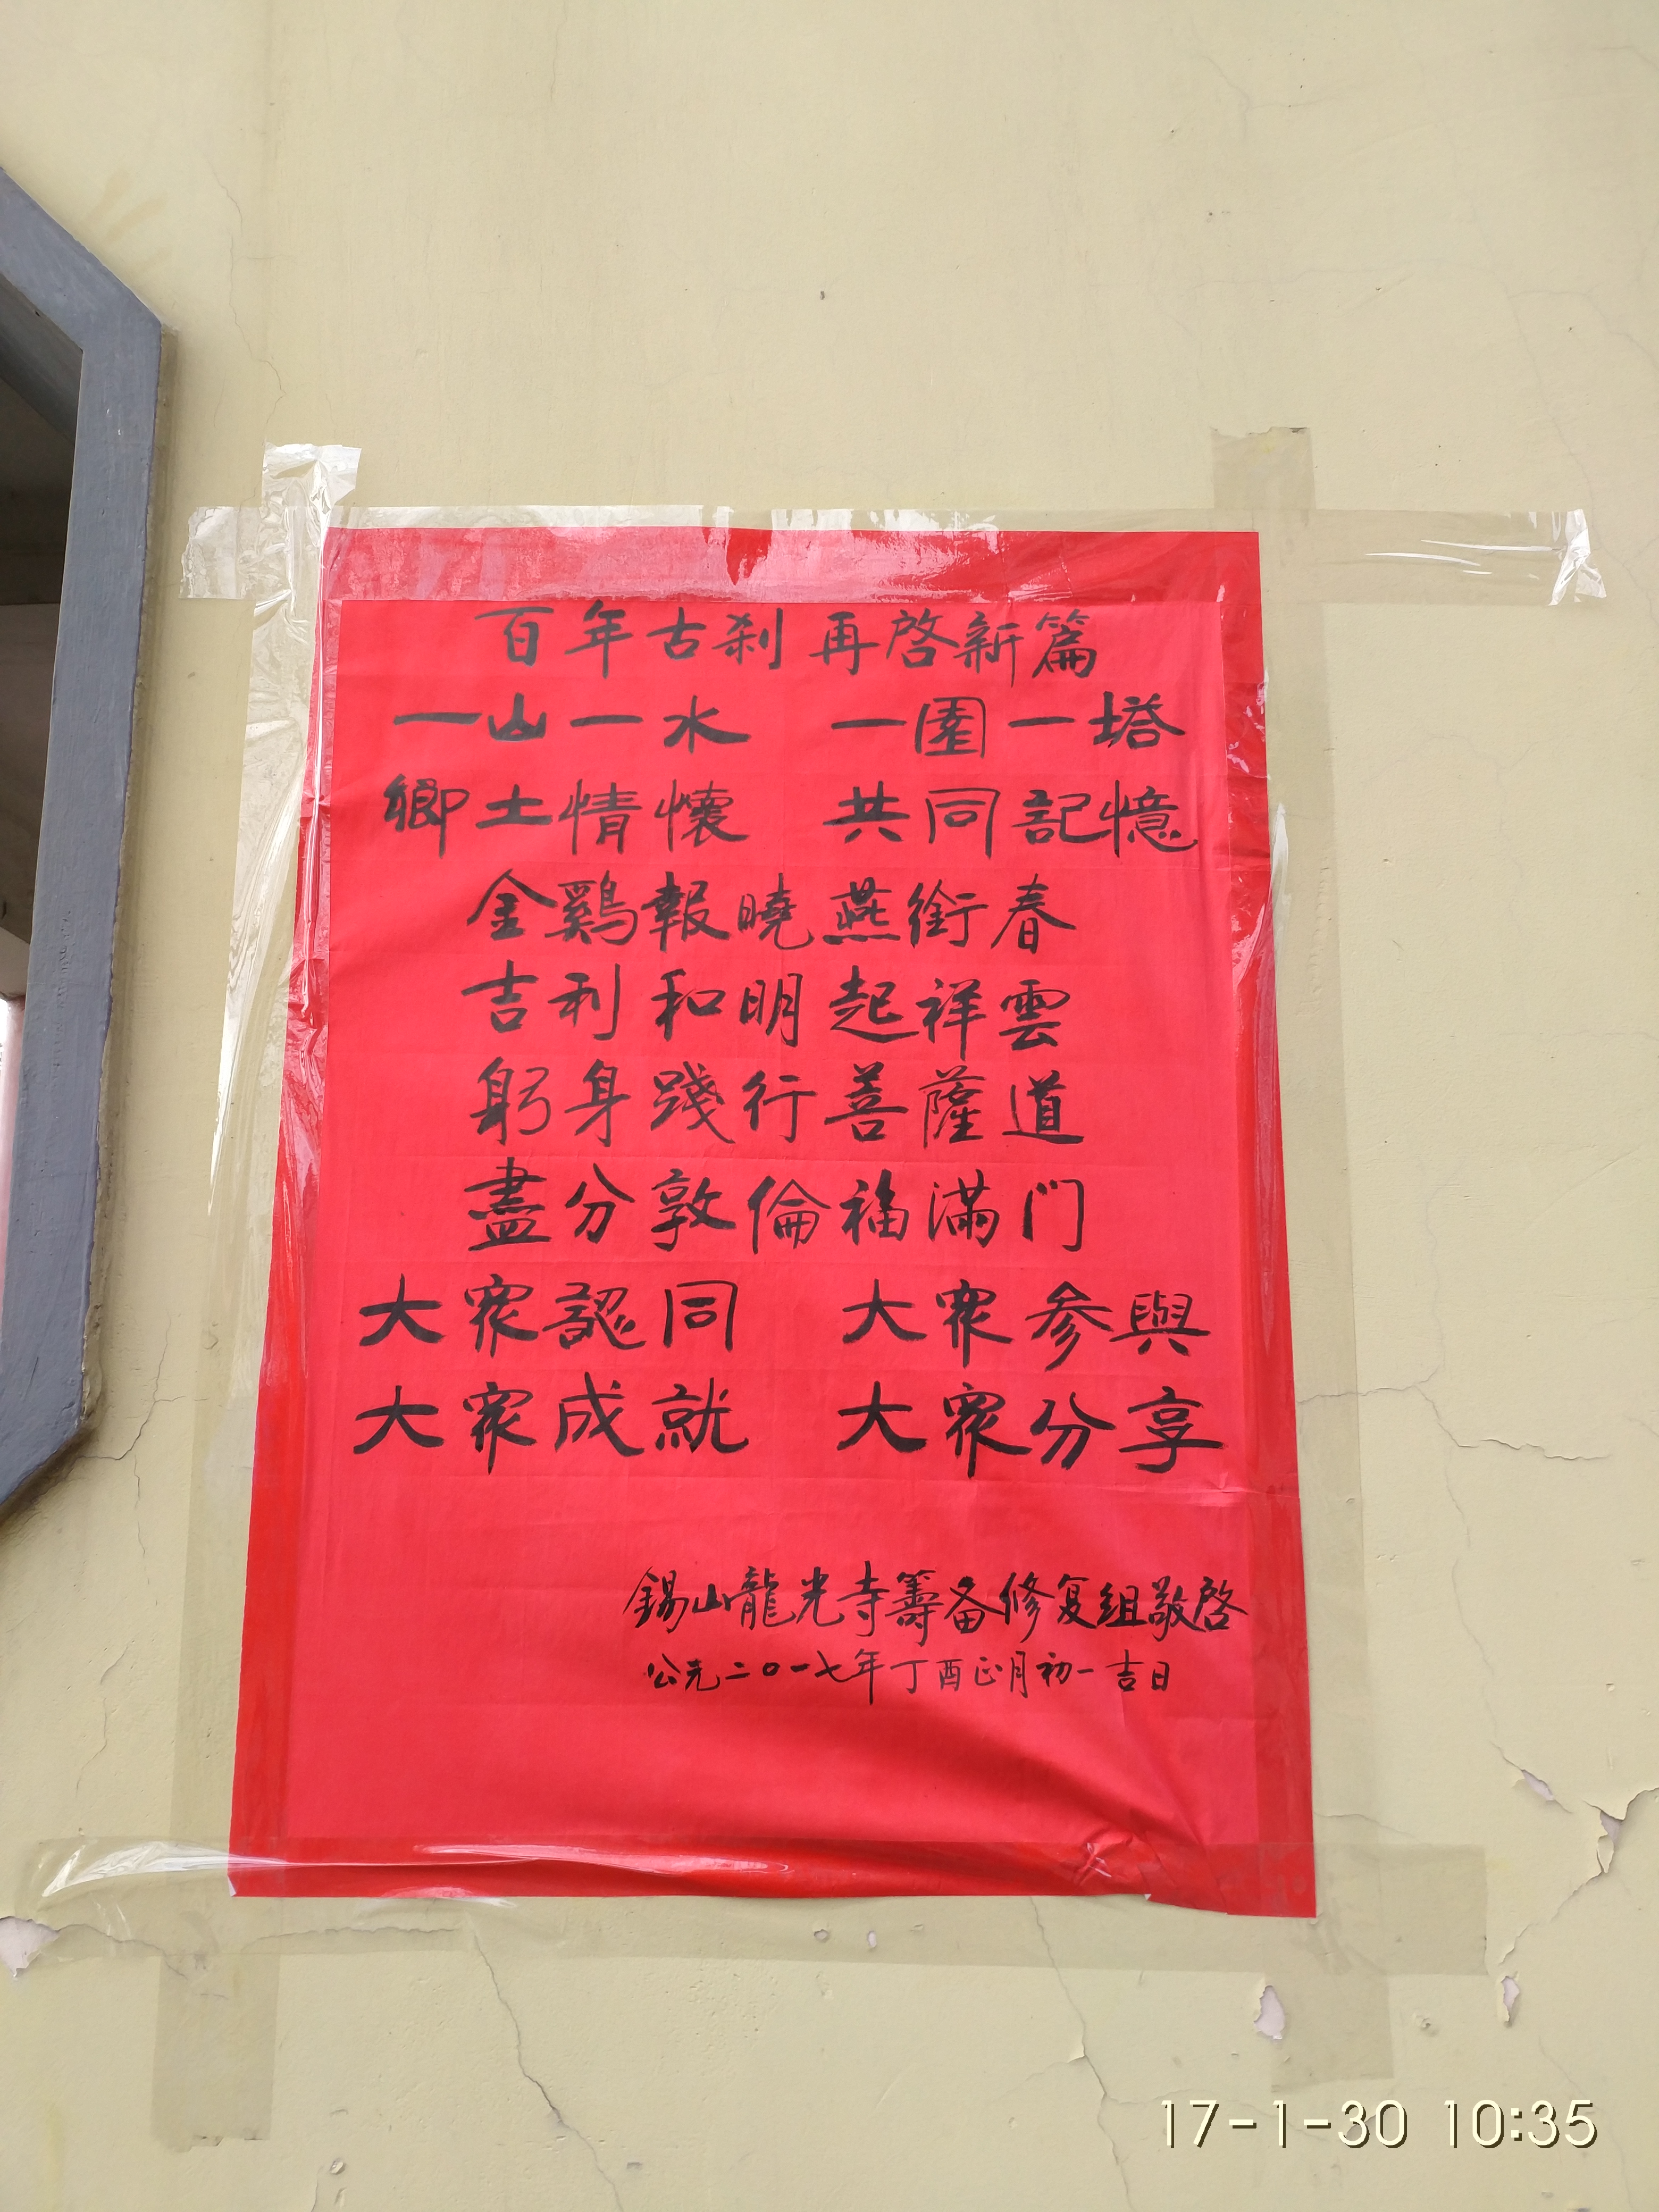 百年古刹 再啓新篇
一山一水 一園一塔
鄉土情懷 共同記憶
金鷄報曉燕銜春
吉利和明起祥雲
躬身踐行菩薩道
盡分敦倫福滿门
大眾認同 大眾参與
大眾成就 大眾分享
錫山龍光寺籌备修复组敬啓
公元二〇一七年丁酉正月初一吉日
17-1-30 10:35